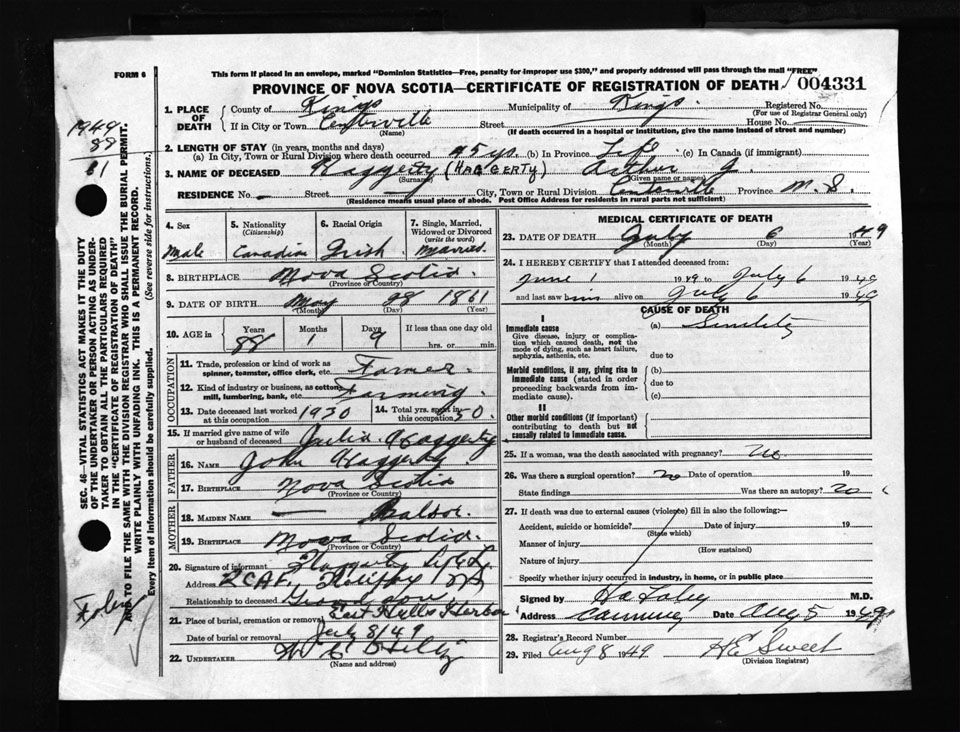 FORM 6
This form if placed in an envelope, marked "Dominion Statistics—Free, penalty for improper use $300," and properly addressed will pass through the mail "FREE"
PROVINCE OF NOVA SCOTIA—CERTIFICATE OF REGISTRATION OF DEATH 004331
1. PLACE OF DEATH County of Kings Municipality of Kings Registered No.
(For use of Registrar General only)
If in City or Town Centerville Street House No.
(Name) (If death occurred in a hospital or institution, give the name instead of street and number)
2. LENGTH OF STAY (in years, months and days)
(a) In City, Town or Rural Division where death occurred 45 yrs (b) In Province Life (c) In Canada (if immigrant)
3. NAME OF DECEASED Haggerty (HAGGERTY) Arthur J.
(Surname) (Given name or names)
RESIDENCE No. — Street — City, Town or Rural Division Centerville Province N.S.
(Residence means usual place of abode. Post Office Address for residents in rural parts not sufficient)
4. Sex Male
5. Nationality (Citizenship) Canadian
6. Racial Origin Irish
7. Single, Married, Widowed or Divorced (write the word) Married
8. BIRTHPLACE Nova Scotia
(Province or Country)
9. DATE OF BIRTH May 28 1861
(Month) (Day) (Year)
10. AGE in Years 88 Months 1 Days 9 If less than one day old
hrs. or min.
OCCUPATION
11. Trade, profession or kind of work as spinner, teamster, office clerk, etc. Farmer
12. Kind of industry or business, as cotton mill, lumbering, bank, etc. Farming
13. Date deceased last worked at this occupation 1930 14. Total yrs. spent in this occupation 50
15. If married give name of wife or husband of deceased Julia Haggerty
FATHER
16. NAME John Haggerty
17. BIRTHPLACE Nova Scotia
(Province or Country)
MOTHER
18. MAIDEN NAME —
19. BIRTHPLACE Nova Scotia
(Province or Country)
20. Signature of informant Haggerty
Address RCAF, Halifax NS
Relationship to deceased Grandson
21. Place of burial, cremation or removal East Halls Harbor
Date of burial or removal July 8/49
22. UNDERTAKER W E Hiltz
(Name and address)
MEDICAL CERTIFICATE OF DEATH
23. DATE OF DEATH July 6 1949
(Month) (Day) (Year)
24. I HEREBY CERTIFY that I attended deceased from:
June 1 1949 to July 6 1949
and last saw him alive on July 6 1949
CAUSE OF DEATH
I
Immediate cause (a) Senility
Give disease, injury or complication which caused death, not the mode of dying, such as heart failure, asphyxia, asthenia, etc. due to
Morbid conditions, if any, giving rise to immediate cause (stated in order proceeding backwards from immediate cause). (b)
due to
(c)
II
Other morbid conditions (if important) contributing to death but not causally related to immediate cause.
25. If a woman, was the death associated with pregnancy?
26. Was there a surgical operation? No Date of operation 19
State findings Was there an autopsy? No
27. If death was due to external causes (violence) fill in also the following:—
Accident, suicide or homicide? Date of injury 19
(State which)
Manner of injury
(How sustained)
Nature of injury
Specify whether injury occurred in industry, in home, or in public place
Signed by M.D.
Address Canning Date Aug 5 1949
28. Registrar's Record Number
29. Filed Aug 8 1949 H E Sweet
(Division Registrar)
SEC. 46—VITAL STATISTICS ACT MAKES IT THE DUTY OF THE UNDERTAKER OR PERSON ACTING AS UNDERTAKER TO OBTAIN ALL THE PARTICULARS REQUIRED IN THE "CERTIFICATE OF REGISTRATION OF DEATH" AND TO FILE THE SAME WITH THE DIVISION REGISTRAR WHO SHALL ISSUE THE BURIAL PERMIT.
WRITE PLAINLY WITH UNFADING INK. THIS IS A PERMANENT RECORD.
Every item of information should be carefully supplied. (See reverse side for instructions.)
1949
88
61
Foley